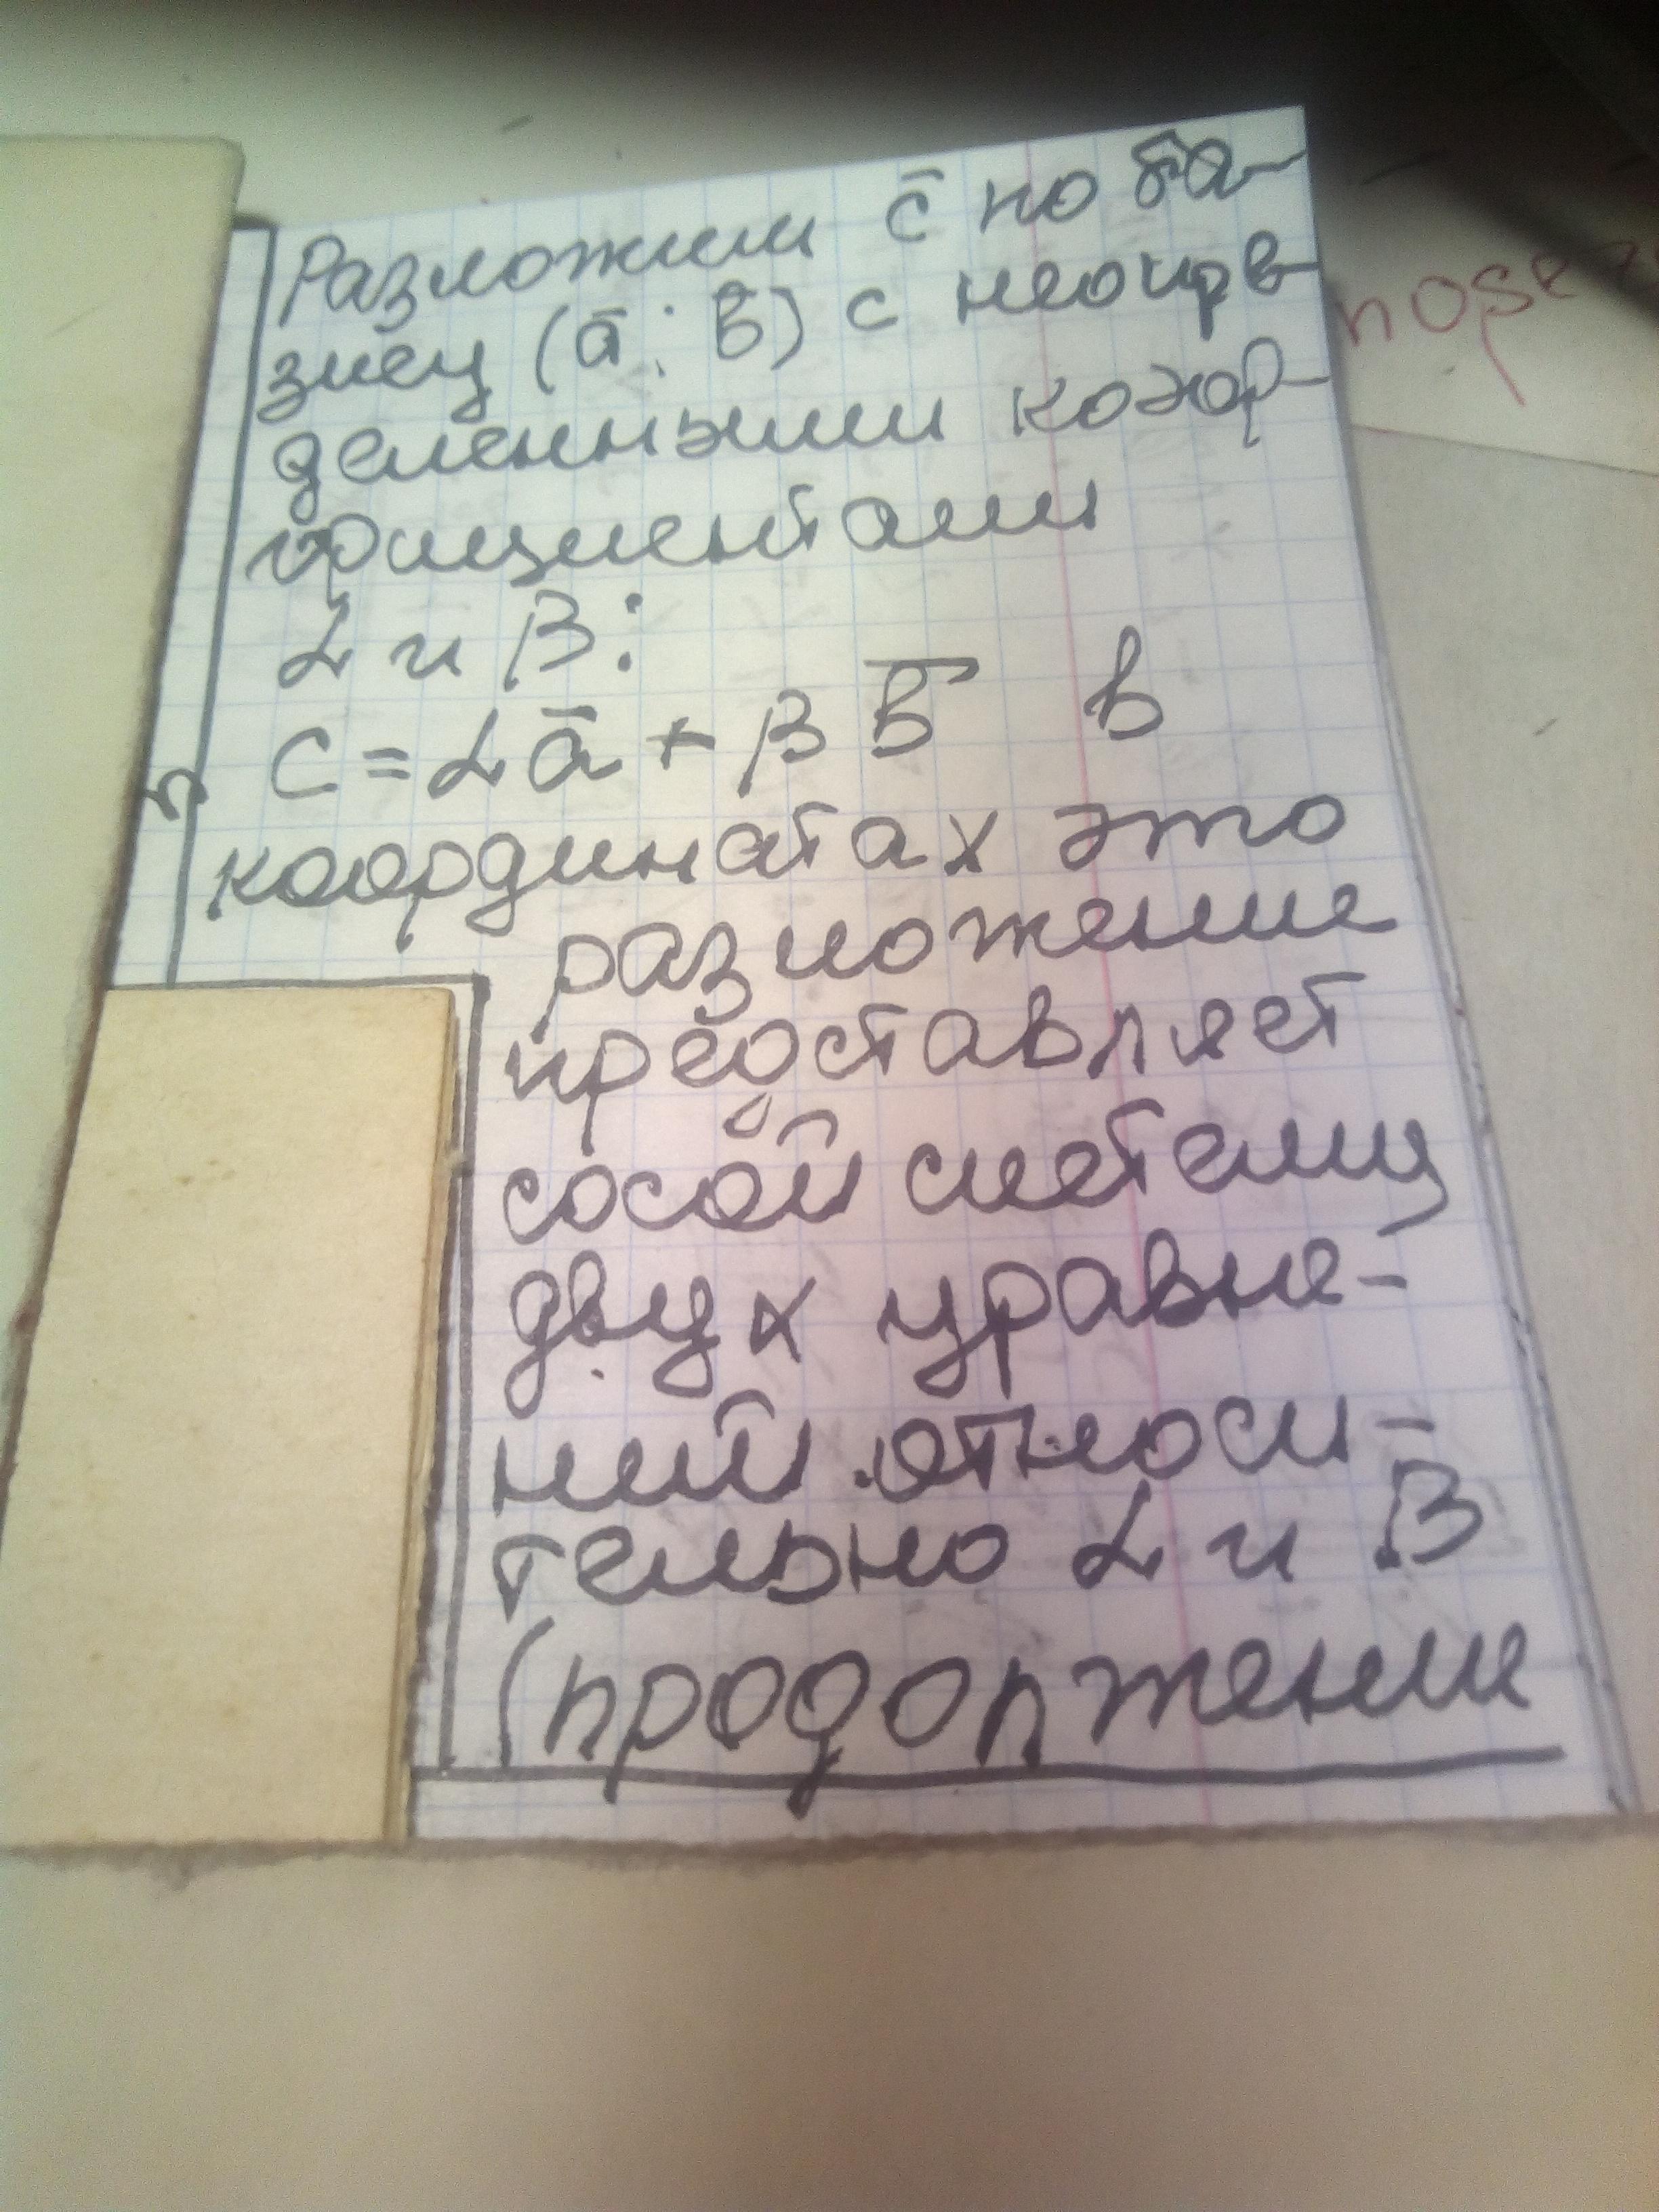 Разложим c̄ по ба-
зису (ā; b̄) с неопре-
деленными коэф-
фициентами
α и β:
c = αā + βb̄ в
координатах это
разложение
представляет
собой систему
двух уравне-
ний относи-
тельно α и β
(продолжение